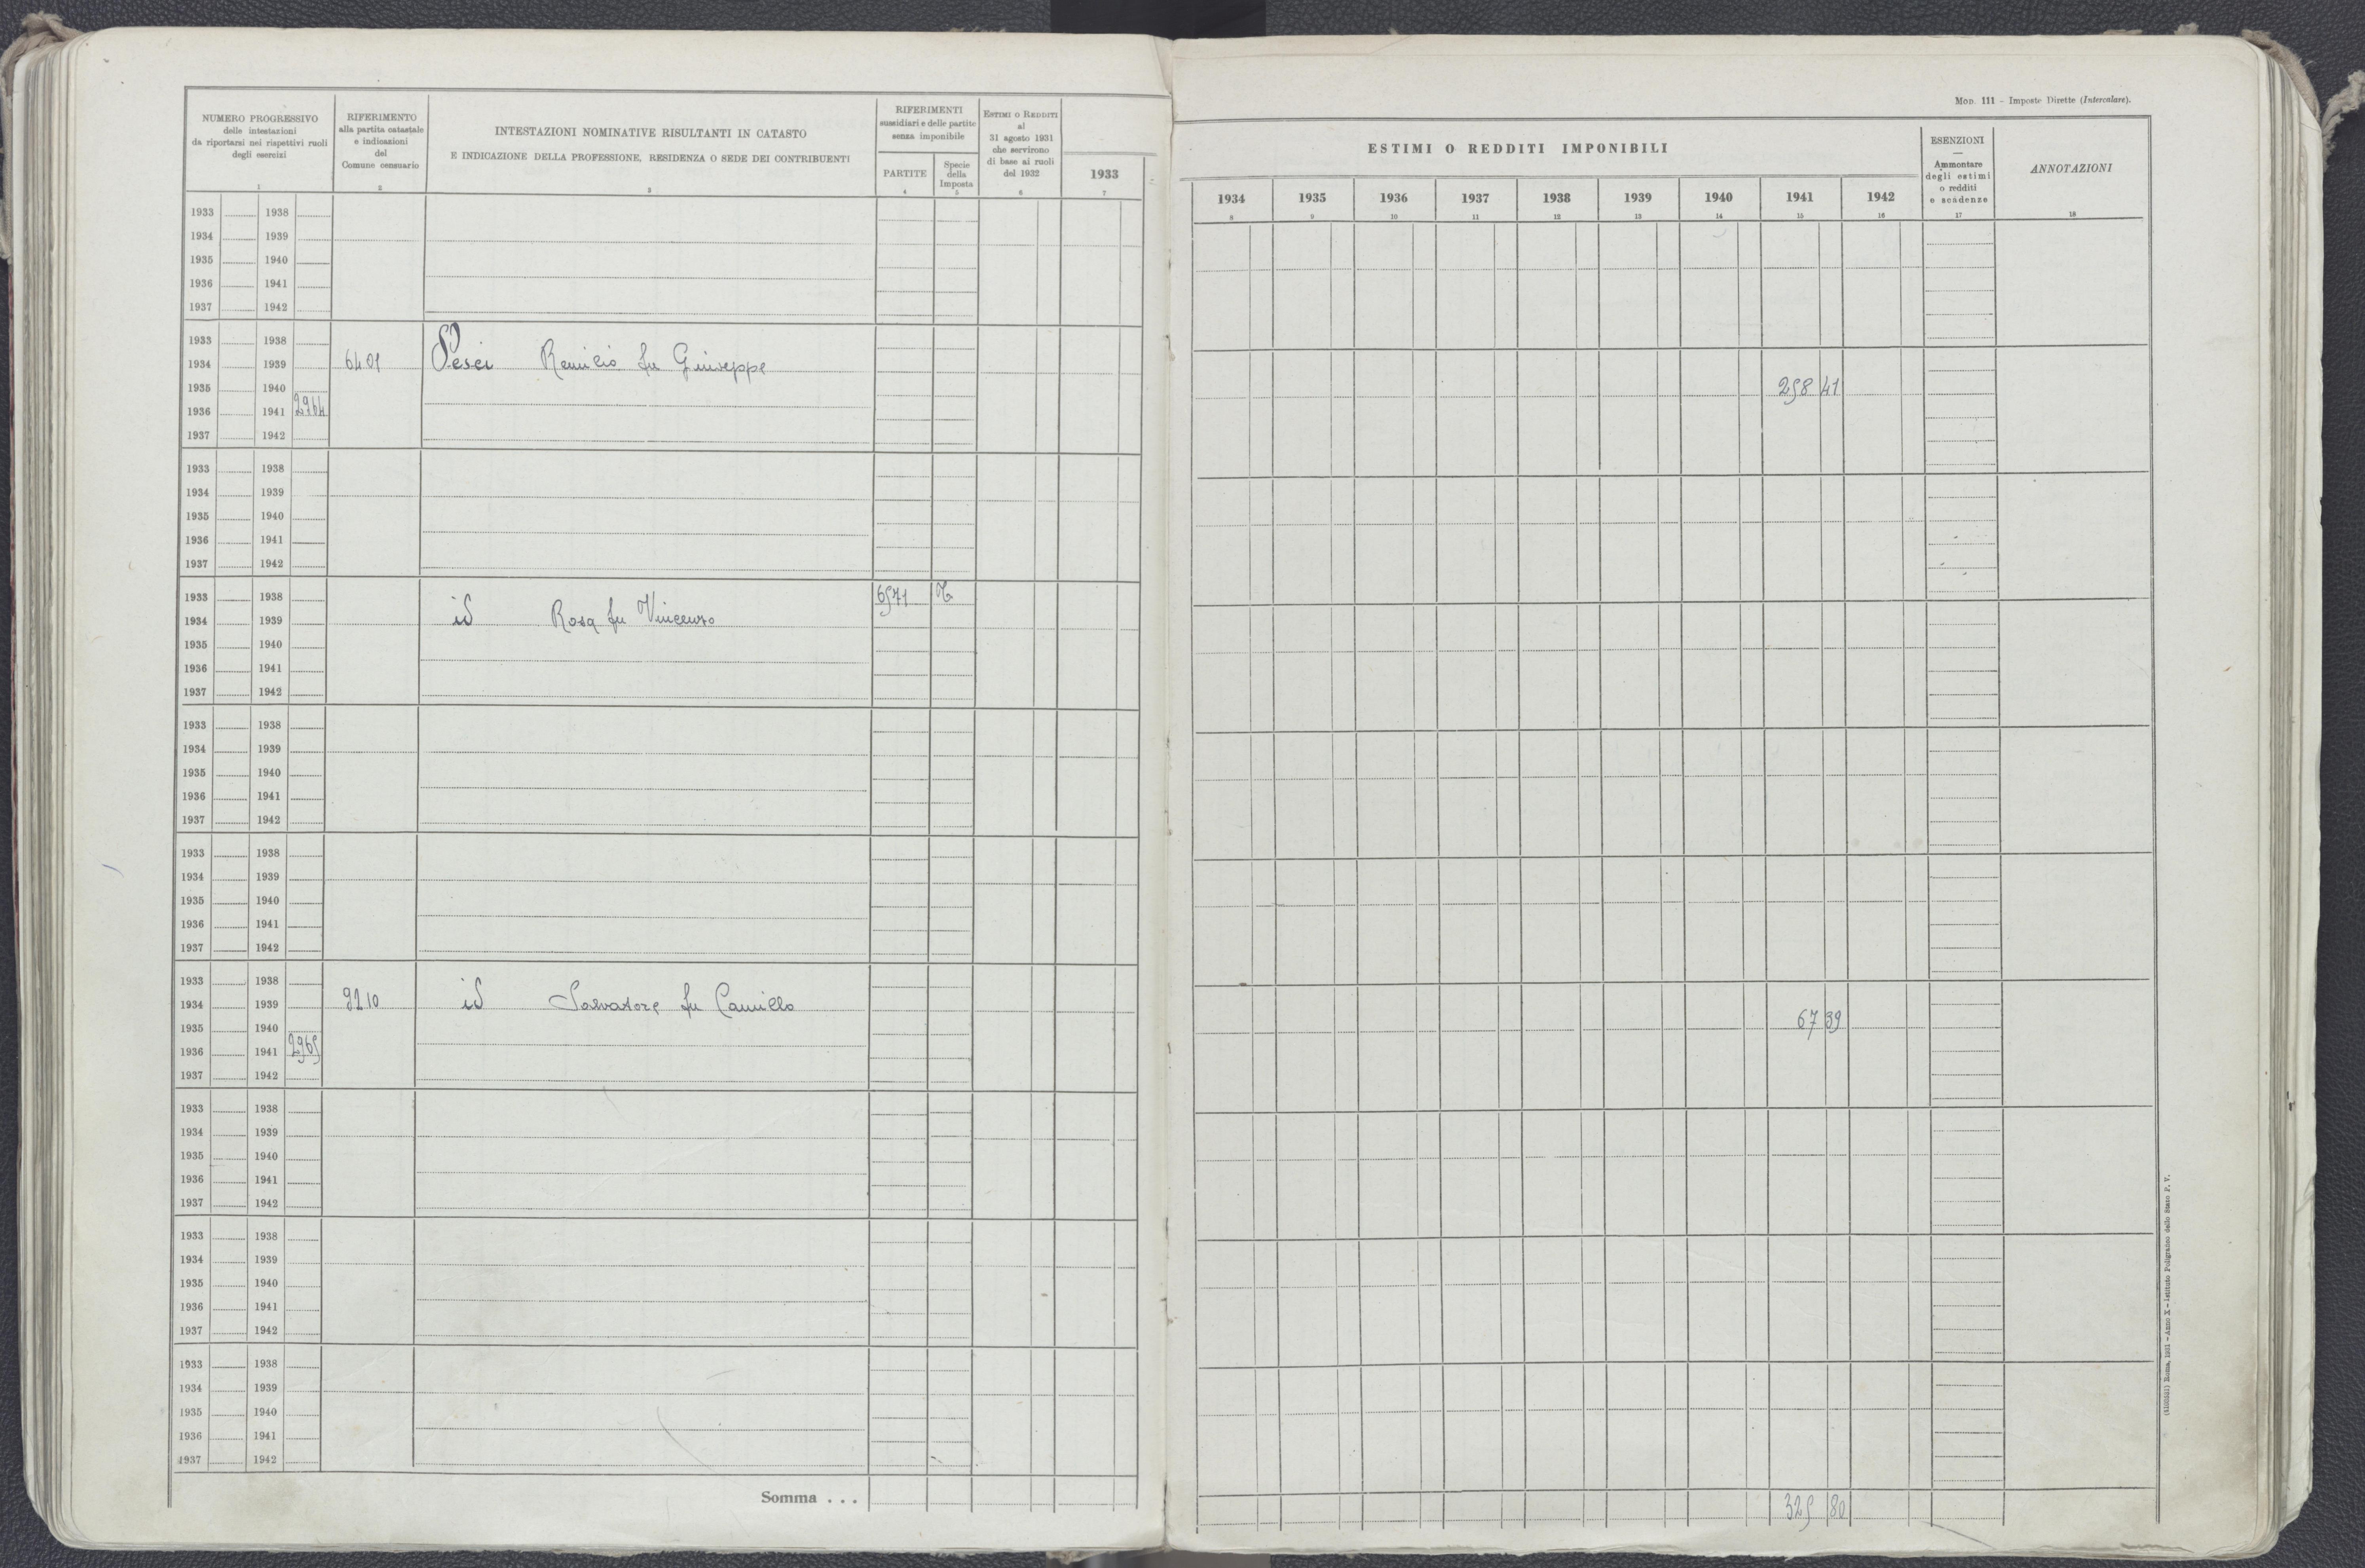 NUMERO PROGRESSIVO
delle intestazioni
da riportarsi nei rispettivi ruoli
degli esercizi
1
RIFERIMENTO
alla partita catastale
e indicazioni
del
Comune censuario
2
INTESTAZIONI NOMINATIVE RISULTANTI IN CATASTO
E INDICAZIONE DELLA PROFESSIONE, RESIDENZA O SEDE DEI CONTRIBUENTI
3
RIFERIMENTI
sussidiari e delle partite
senza imponibile
PARTITE
4
Specie
della
Imposta
5
ESTIMI O REDDITI
al
31 agosto 1931
che servirono
di base ai ruoli
del 1932
6
1933
7
1933 1938
1934 1939
1935 1940
1936 1941
1937 1942
1933 1938
1934 1939 6401 Pesci Remicio fu Giuseppe
1935 1940
1936 1941 2964
1937 1942
1933 1938
1934 1939
1935 1940
1936 1941
1937 1942
1933 1938 6571 T
1934 1939 id Rosa fu Vincenzo
1935 1940
1936 1941
1937 1942
1933 1938
1934 1939
1935 1940
1936 1941
1937 1942
1933 1938
1934 1939
1935 1940
1936 1941
1937 1942
1933 1938
1934 1939 9210 id Salvatore fu Camillo
1935 1940
1936 1941 2965
1937 1942
1933 1938
1934 1939
1935 1940
1936 1941
1937 1942
1933 1938
1934 1939
1935 1940
1936 1941
1937 1942
1933 1938
1934 1939
1935 1940
1936 1941
1937 1942
Somma . . .
MOD. 111 – Imposte Dirette (Intercalare).
ESTIMI O REDDITI IMPONIBILI
1934 1935 1936 1937 1938 1939 1940 1941 1942
8 9 10 11 12 13 14 15 16
ESENZIONI
Ammontare
degli estimi
o redditi
e scadenze
17
ANNOTAZIONI
18
258 41
67 39
325 80
Roma, 1931 – Anno X – Istituto Poligrafico dello Stato P. V.